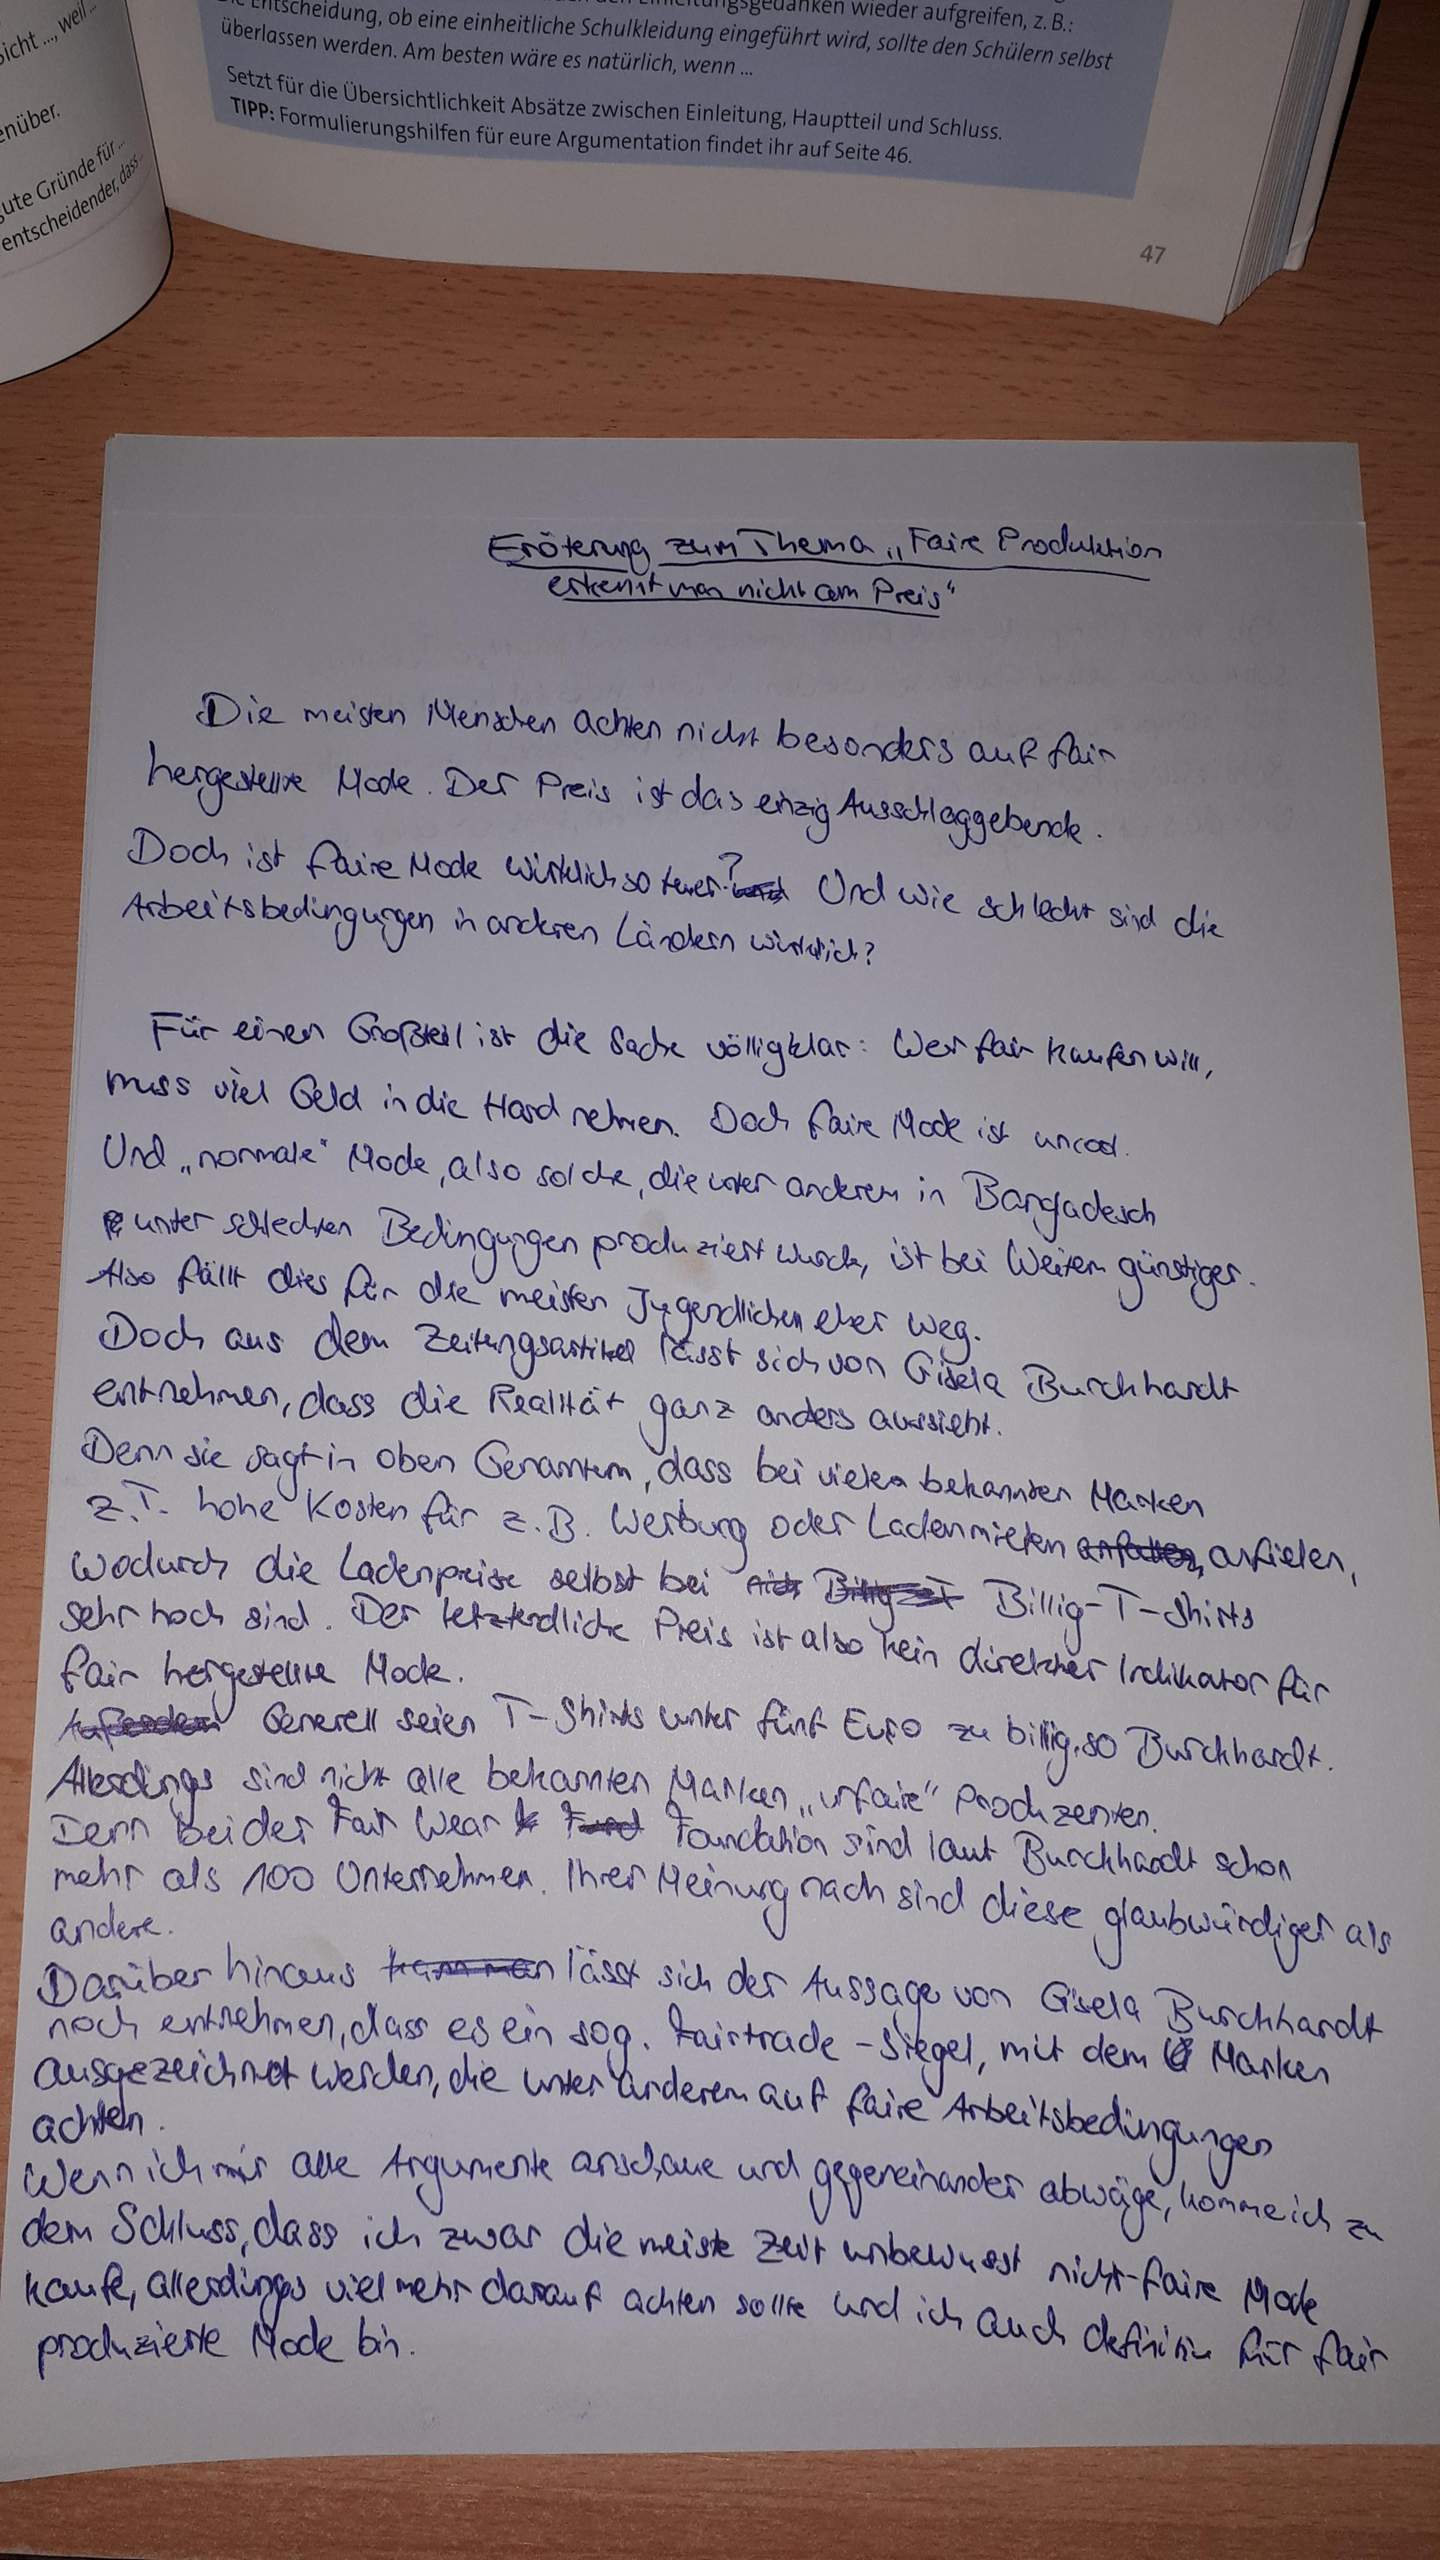 sicht ..., weil ...
enüber.
gute Gründe für ...
entscheidender, dass ...
wieder aufgreifen, z. B.:
Entscheidung, ob eine einheitliche Schulkleidung eingeführt wird, sollte den Schülern selbst
überlassen werden. Am besten wäre es natürlich, wenn ...
Setzt für die Übersichtlichkeit Absätze zwischen Einleitung, Hauptteil und Schluss.
TIPP: Formulierungshilfen für eure Argumentation findet ihr auf Seite 46.
47
Eröterung zum Thema „Faire Produktion
erkennt man nicht am Preis“
Die meisten Menschen achten nicht besonders auf fair
hergestellte Mode. Der Preis ist das einzig Ausschlaggebende.
Doch ist faire Mode wirklich so teuer? Und wie schlecht sind die
Arbeitsbedingungen in anderen Ländern wirklich?
Für einen Großteil ist die Sache völlig klar: Wer fair kaufen will,
muss viel Geld in die Hand nehmen. Doch faire Mode ist uncool.
Und „normale“ Mode, also solche, die unter anderem in Bangadesch
unter schlechten Bedingungen produziert wurde, ist bei Weitem günstiger.
Also fällt dies für die meisten Jugendlichen eher weg.
Doch aus dem Zeitungsartikel lässt sich von Gisela Burckhardt
entnehmen, dass die Realität ganz anders aussieht.
Denn sie sagt in oben Genanntem, dass bei vielen bekannten Marken
z.T. hohe Kosten für z.B. Werbung oder Ladenmieten anfielen,
wodurch die Ladenpreise selbst bei Billig-T-Shirts
sehr hoch sind. Der letztendliche Preis ist also kein direkter Indikator für
fair hergestellte Mode.
Generell seien T-Shirts unter fünf Euro zu billig, so Burckhardt.
Allerdings sind nicht alle bekannten Marken „unfaire“ Produzenten.
Denn bei der Fair Wear Foundation sind laut Burckhardt schon
mehr als 100 Unternehmen. Ihrer Meinung nach sind diese glaubwürdiger als
andere.
Darüber hinaus lässt sich der Aussage von Gisela Burckhardt
noch entnehmen, dass es ein sog. Fairtrade-Siegel, mit dem Marken
ausgezeichnet werden, die unter anderem auf faire Arbeitsbedingungen
achten.
Wenn ich mir alle Argumente anschaue und gegeneinander abwäge, komme ich zu
dem Schluss, dass ich zwar die meiste Zeit unbewusst nicht-faire Mode
kaufe, allerdings viel mehr darauf achten sollte und ich auch definitiv für fair
produzierte Mode bin.